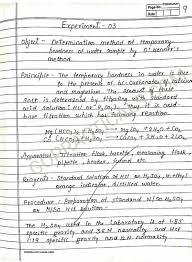 Page No. 9
Experiment - 03
Object - Determination method of temporary
hardness of water sample by O' Hener's
method.
Principle - The temporary hardness in water is due
to the present of bi-carbonate of calcium
and magnesium. The amount of these
salt is determined by titrating with standard
acid solution (HCl or H2SO4). Thus it is acid-
base titration which has following reaction
Mg(HCO3)2 + H2SO4 → MgSO4 + 2H2O + 2CO2
Ca(HCO3)2 + 2HCl → CaCl2 + 2H2O + 2CO2
Apparatus - Titration flask, burette, measuring flask,
pipette, beaker, stand etc.
Reagents - Standard solution of HCl or H2SO4, methyl
orange indicator, distilled water.
Procedure - Preparation of standard N/50 H2SO4 or
N/50 HCl solution -
The H2SO4 used in the Laboratory is of 1.85
specific gravity and 36 N normality and HCl
1.19 specific gravity and normality